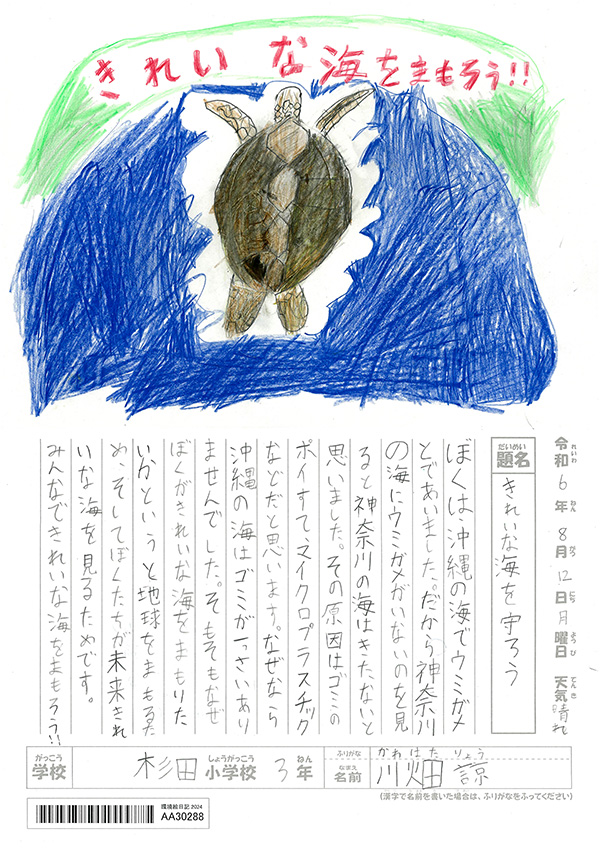 きれいな海をまもろう!!
令和6年8月12日月曜日 天気 晴れ
れいわ ねん がつ にち ようび てんき
だいめい
題名
きれいな海を守ろう
ぼくは、沖縄の海でウミガメ
とであいました。だから神奈川
の海にウミガメがいないのを見
ると神奈川の海はきたないと
思いました。その原因はゴミの
ポイすて、マイクロプラスチック
などだと思います。なぜなら
沖縄の海はゴミがいっさいあり
ませんでした。そもそもなぜ
ぼくがきれいな海をまもりた
いかというと地球をまもるた
め、そしてぼくたちが未来きれ
いな海を見るためです。
みんなできれいな海をまもろう!!
がっこう しょうがっこう ねん ふりがな かわはた りょう
学校 杉田 小学校 3年 なまえ 名前 川畑 諒
(漢字で名前を書いた場合は、ふりがなをふってください)
環境絵日記 2024
AA30288